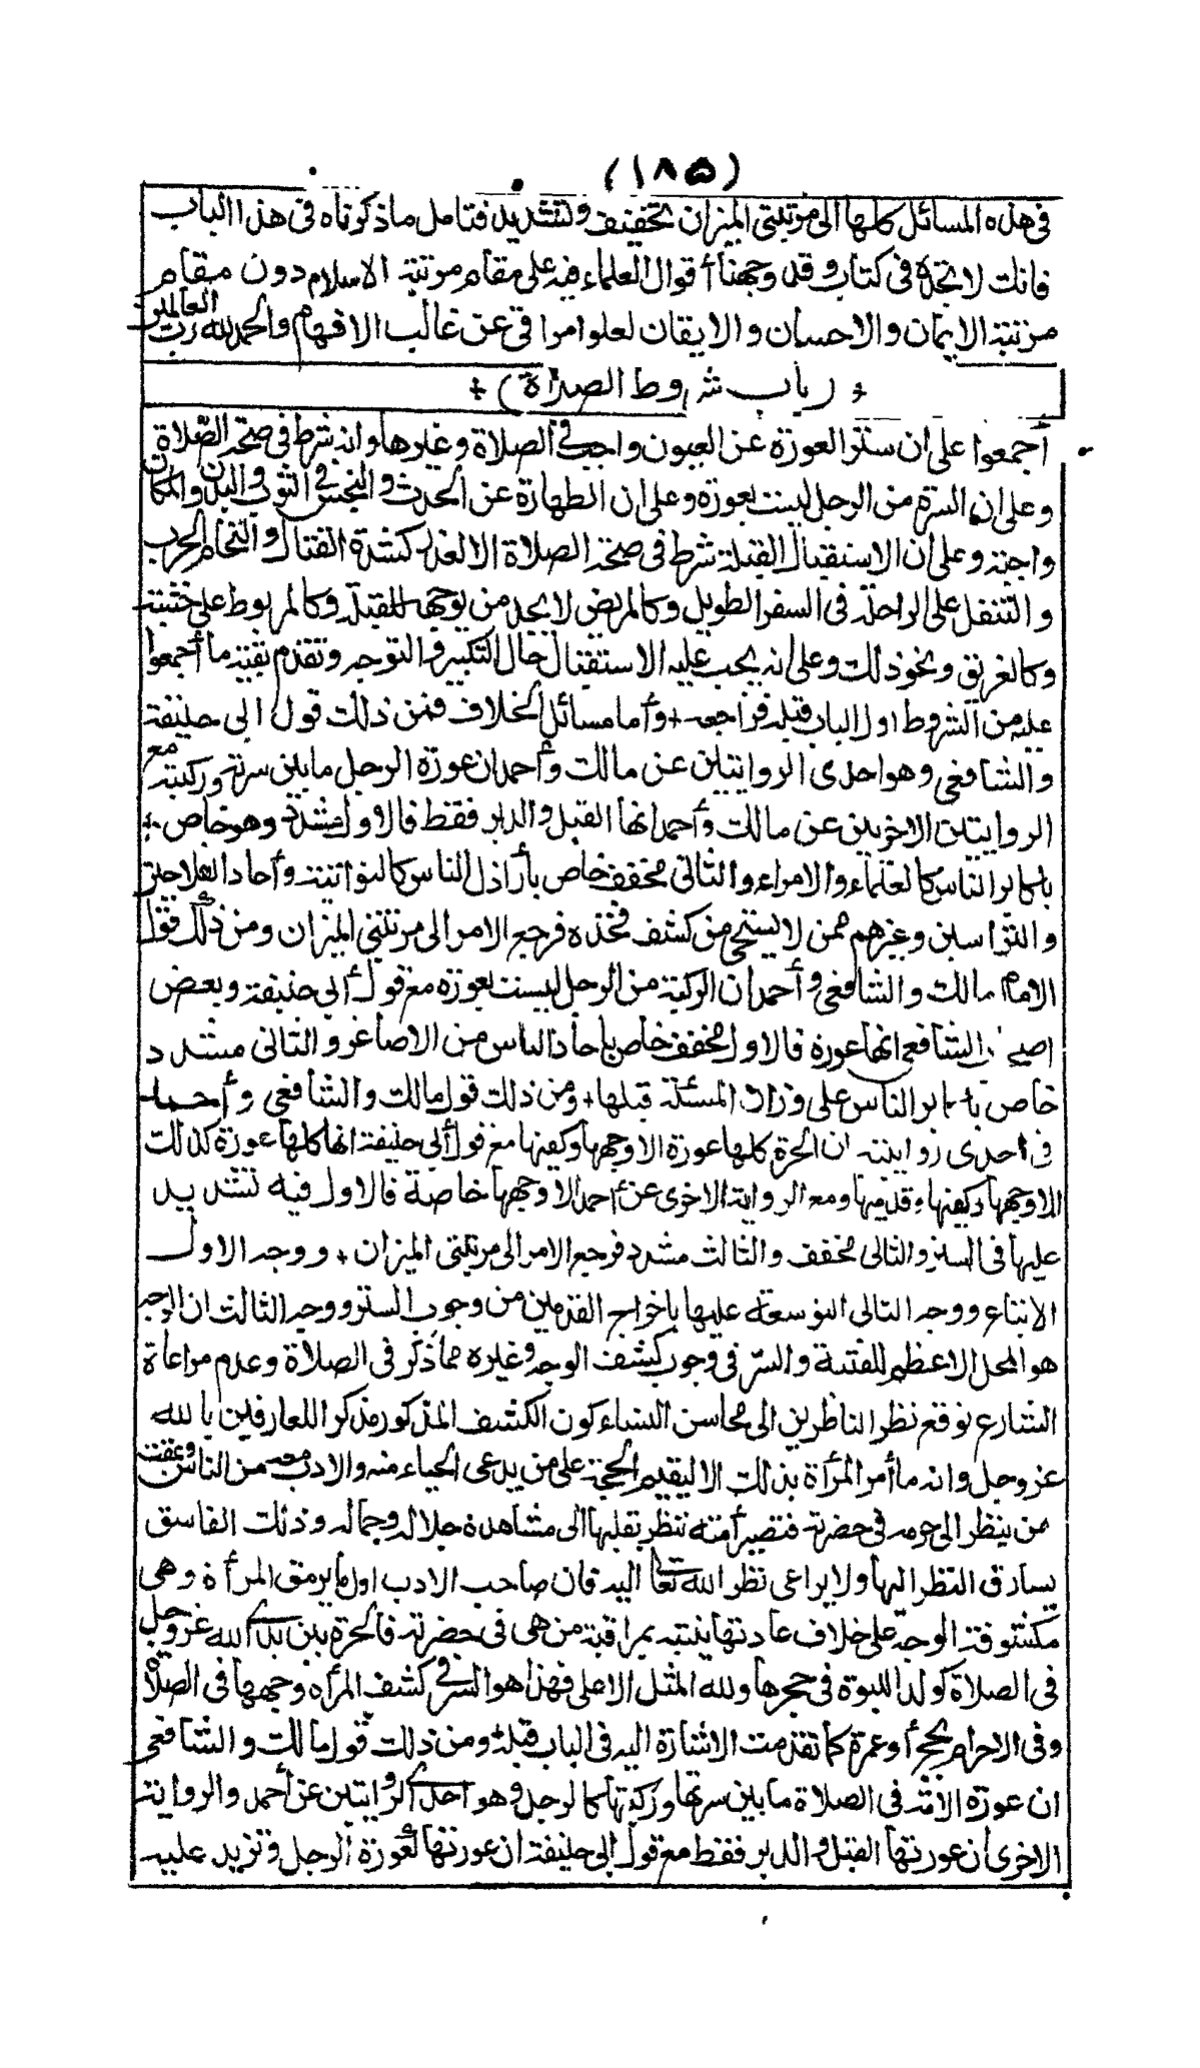 (١٨٥)
في هذه المسائل كلها الى مرتبتي الميزان تخفيف وتشديد فتامل ما ذكرناه في هذا الباب
فانك لا تجده في كتاب وقد وجهنا أقوال العلماء فيه على مقام مرتبة الاسلام دون مقام
مرتبة الايمان والاحسان والايقان لعلو امراقي عن غالب الافهام والحمد لله رب العالمين
(باب شروط الصلاة)
أجمعوا على ان ستر العورة عن العيون واجب في الصلاة وغيرها وانه شرط في صحة الصلاة
وعلى ان السرة من الرجل ليست بعورة وعلى ان الطهارة عن الحدث والنجس في الثوب والبدن والمكان
واجبة وعلى ان الاستقبال القبلة شرط في صحة الصلاة الا لعذر كشدة القتال والتحام الحرب
والتنفل على الراحلة في السفر الطويل وكالمريض لا يجد من يوجهه للقبلة وكالمربوط على خشبة
وكالغريق ونحو ذلك وعلى انه يجب عليه الاستقبال حال التكبير والتوجه وتقدم بقية ما أجمعوا
عليه من الشروط اول الباب قبله فراجعه + وأما مسائل الخلاف فمن ذلك قول ابى حنيفة
والشافعى وهو احدى الروايتين عن مالك وأحمد ان عورة الرجل ما بين سرته وركبته مع
الروايتين الاخريين عن مالك وأحمد انها القبل والدبر فقط فالاول مشدد وهو خاص +
باكابر الناس كالعلماء والامراء والثانى مخفف خاص بأراذل الناس كالنواتية وآحاد الفلاحين
والتراسين وغيرهم ممن لا يستحي من كشف فخذه فرجع الامر الى مرتبتي الميزان ومن ذلك قول
الامام مالك والشافعي وأحمد ان الركبة من الرجل ليست بعورة مع قول أبى حنيفة وبعض
اصحاب الشافعى انها عورة فالاول مخفف خاص بآحاد الناس من الاصاغر والثانى مشدد
خاص باكابر الناس على وزان المسئلة قبلها + ومن ذلك قول مالك والشافعي وأحمد
في احدى روايتيه ان الحرة كلها عورة الا وجهها وكفيها مع قول أبى حنيفة انها كلها عورة كذلك
الا وجهها وكفيها وقدميها ومع الرواية الاخرى عن أحمد الا وجهها خاصة فالاول فيه تشديد
عليها في الستر والثانى مخفف والثالث مشدد فرجع الامر الى مرتبتي الميزان + ووجه الاول
الاتباع ووجه الثانى التوسعة عليها باخراج القدمين من وجوب الستر ووجه الثالث ان الوجه
هو المحل الاعظم للفتنة والسر في وجوب كشف الوجه وغيره مما ذكر في الصلاة وعدم مراعاة
الشارع توقع نظر الناظرين الى محاسن النساء كون الكشف المذكور مذكرا للعارفين بالله
عز وجل وانه ما أمر المرأة بذلك الا ليقيم الحجة على من يدعى الحياء منه والادب معه من الناس وعفت
من ينظر الى حرمه في حضرته فتصير أمته تنظر بقلبها الى مشاهدة جلاله وجماله وذلك الفاسق
يسارق النظر اليها ولا يراعى نظر الله تعالى اليه فان صاحب الادب اول ما يرمق المرأة وهى
مكشوفة الوجه على خلاف عادتها ينتبه بمراقبة من هى في حضرته فالحرة بين يدى الله عز وجل
في الصلاة كولد اللبوة في حجرها ولله المثل الاعلى فهذا هو السر في كشف المرأة وجهها في الصلاة
وفى الاحرام بحج أو عمرة كما تقدمت الاشارة اليه في الباب قبله + ومن ذلك قول مالك والشافعى
ان عورة الامة في الصلاة ما بين سرتها وركبتها كالرجل وهو احدى الروايتين عن أحمد والرواية
الاخرى ان عورتها القبل والدبر فقط مع قول ابى حنيفة ان عورتها كعورة الرجل وتزيد عليه